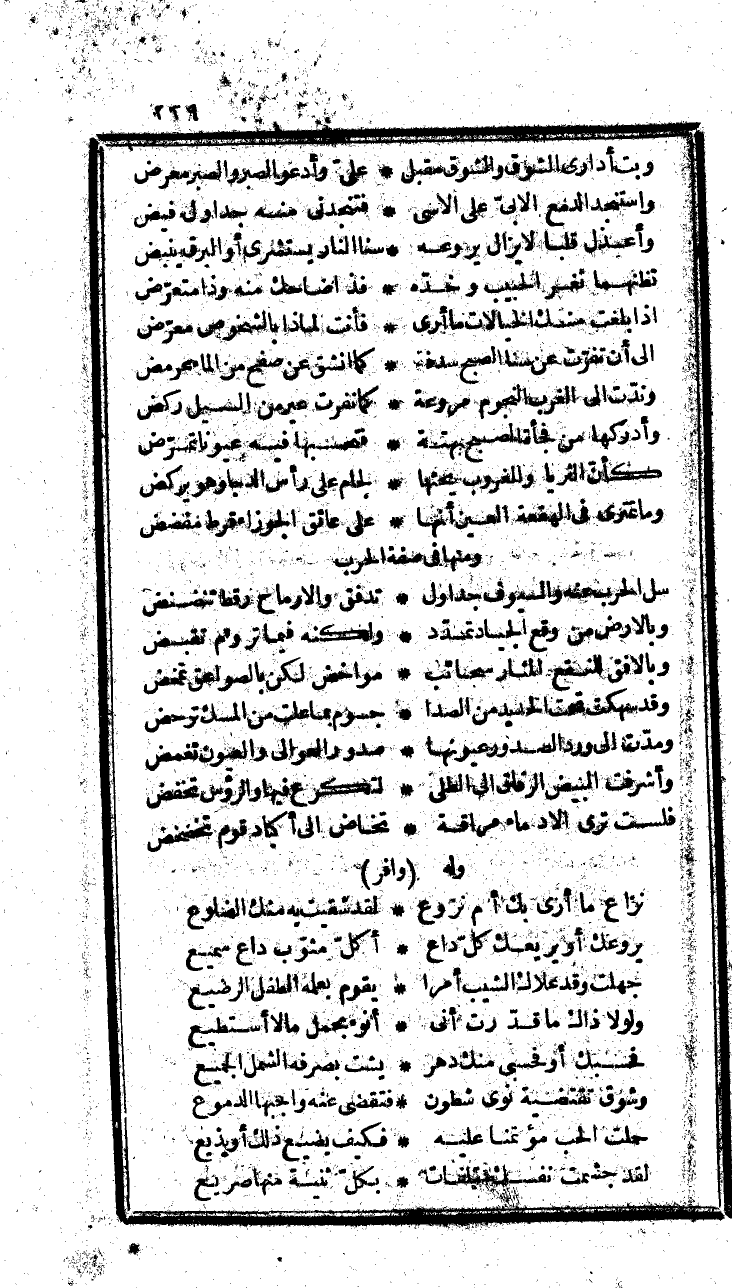 ٢٢٩
وبت أدارى الشوق والشوق مقبل * علىّ وأدعو الصبر والصبر معرض
واستنجد الدمع الابىّ على الاسى * فتنجدنى منه جداول فيض
وأعذل قلبا لايزال يروعه * سنا النار يستشرى أو البرق ينبض
تظنهما ثغر الحبيب وخدّه * فذا ضاحك منه وذا متعرّض
اذا بلغت منك الخيالات ما أرى * فأنت لماذا بالشخوص معرّض
الى أن تفرّت عن سنا الصبح سدفة * كما انشق عن صفح من الماء عرمض
وندّت الى الغرب النجوم مروعة * كما نفرت عير من السيل ركض
وأدركها من فجأة الصبح بهتة * فتحسبها فيه عيونا تمرّض
كأنّ الثريا والغروب يحثها * لجام على رأس الدجا وهو يركض
وما تمترى فى الهقعة العين أنها * على عاتق الجوزاء قرط مفضض
ومنها فى صفة الحرب
سل الحرب عنه والسيوف جداول * تدفق والارماح رقط تنضنض
وبالارض من وقع الجياد تمدّد * ولكنه فيما تروم تقبض
وبالافق للنقع المثار سحائب * مواخض لكن بالصواعق تمخض
وقد سهكت تحت الحديد من الصدا * جسوم بما علت من المسك ترحض
ومدّت الى ورد الصدور عيونها * صدور العوالى والعيون تغمض
وأشرفت البيض الرقاق الى الطلى * لتكرع فيها والرؤس تخفض
فلست ترى الا دماء مراقة * تخاض الى أكباد قوم تخضخض
وله (وافر)
نزاع ما أرى بك أم نزوع * لقد شقيت به منك الضلوع
يروعك أو يريعك كلّ داع * أكلّ مثوّب داع سميع
جهلت وقد علاك الشيب أمرا * يقوم بعلمه الطفل الرضيع
ولولا ذاك ما قدّرت أنى * أنوء بحمل مالا أستطيع
فحسبك أو فحسبى منك دهر * يشت بصرفه الشمل الجميع
وشوق تقتضيه نوى شطون * فتقضى عنه واجبها الدموع
حملت الحب مؤتمنا عليه * فكيف يضيع ذلك أو يذيع
لقد جشمت نفسك * بكلّ ثنية منها صريع